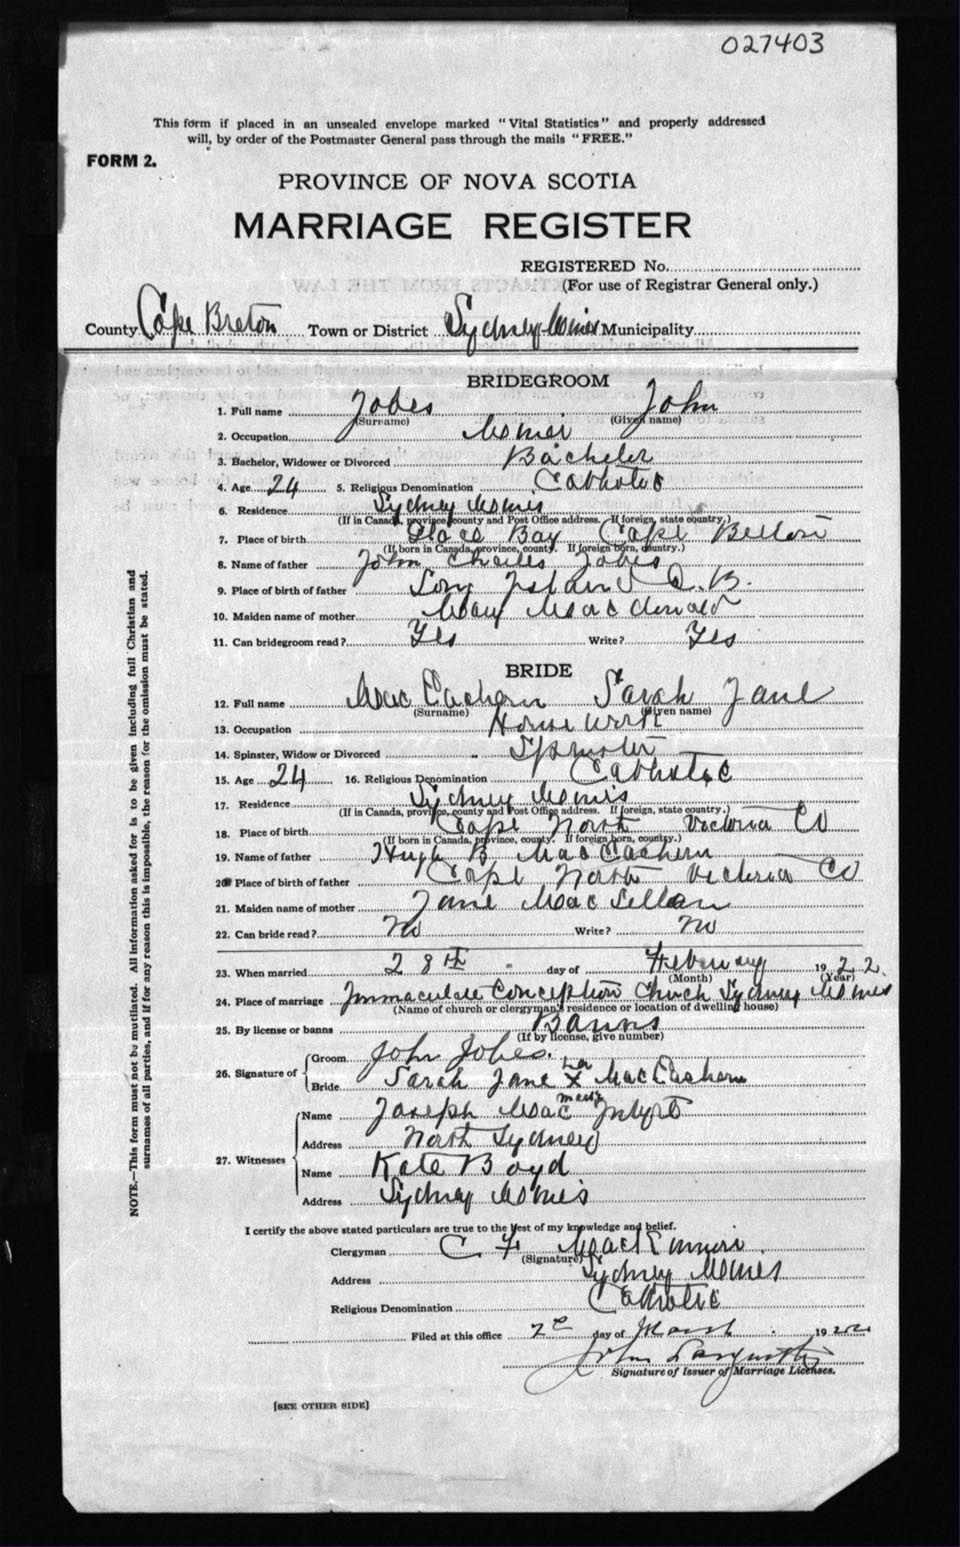 027403
This form if placed in an unsealed envelope marked "Vital Statistics" and properly addressed
will, by order of the Postmaster General pass through the mails "FREE."
FORM 2.
PROVINCE OF NOVA SCOTIA
MARRIAGE REGISTER
REGISTERED No.
(For use of Registrar General only.)
County Cape Breton Town or District Sydney Mines Municipality
BRIDEGROOM
1. Full name Jobes John
(Surname) (Given name)
2. Occupation Miner
3. Bachelor, Widower or Divorced Bachelor
4. Age 24 5. Religious Denomination Catholic
6. Residence Sydney Mines
(If in Canada, province, county and Post Office address. If foreign, state country.)
7. Place of birth Glace Bay Cape Breton
(If born in Canada, province, county. If foreign born, country.)
8. Name of father John Charles Jobes
9. Place of birth of father Long Island C.B.
10. Maiden name of mother Mary MacDonald
11. Can bridegroom read? Yes Write? Yes
BRIDE
12. Full name MacEachern Sarah Jane
(Surname) (Given name)
13. Occupation House work
14. Spinster, Widow or Divorced Spinster
15. Age 24 16. Religious Denomination Catholic
17. Residence Sydney Mines
(If in Canada, province, county and Post Office address. If foreign, state country.)
18. Place of birth Cape North Victoria Co
(If born in Canada, province, county. If foreign born, country.)
19. Name of father Hugh B MacEachern
20 Place of birth of father Cape North Victoria Co
21. Maiden name of mother Jane MacLellan
22. Can bride read? No Write? No
23. When married 28th day of February 1922
(Month) (Year)
24. Place of marriage Immaculate Conception Church Sydney Mines
(Name of church or clergyman's residence or location of dwelling house)
25. By license or banns Banns
(If by license, give number)
26. Signature of
Groom John Jobes.
her
Bride Sarah Jane X MacEachern
mark
27. Witnesses
Name Joseph Mac Intyre
Address North Sydney
Name Kate Boyd
Address Sydney Mines
I certify the above stated particulars are true to the best of my knowledge and belief.
Clergyman C F MacKinnon
(Signature)
Address Sydney Mines
Religious Denomination Catholic
Filed at this office 2 day of March 1922
John
Signature of Issuer of Marriage Licenses.
[SEE OTHER SIDE]
NOTE.—This form must not be mutilated. All information asked for is to be given including full Christian and
surnames of all parties, and if for any reason this is impossible, the reason for the omission must be stated.